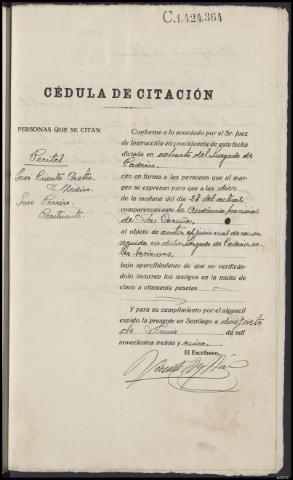 C.1.424.364
CÉDULA DE CITACIÓN
PERSONAS QUE SE CITAN
Peritos
Jose Puente Castro
Medico
Jose Pereiro
Practicante
Conforme a lo acordado por el Sr. Juez
de Instrucción en providencia de esta fecha
dictada en exhorto del Juzgado de
Padrón
cito en forma a las personas que al mar-
gen se expresan para que a las diez
de la mañana del dia 28 del actual
comparezcan ante la Audiencia provincial
de La Coruña
al objeto de asistir al juicio oral de causa
seguida en dicho Juzgado de Padron so-
bre lesiones
bajo apercibimiento de que no verificán-
dolo incurren los testigos en la multa de
cinco a cincuenta pesetas
Y para su cumplimiento por el alguacil
expido la presente en Santiago a
de Junio de mil
novecientos treinta y cinco.
El Escribano,